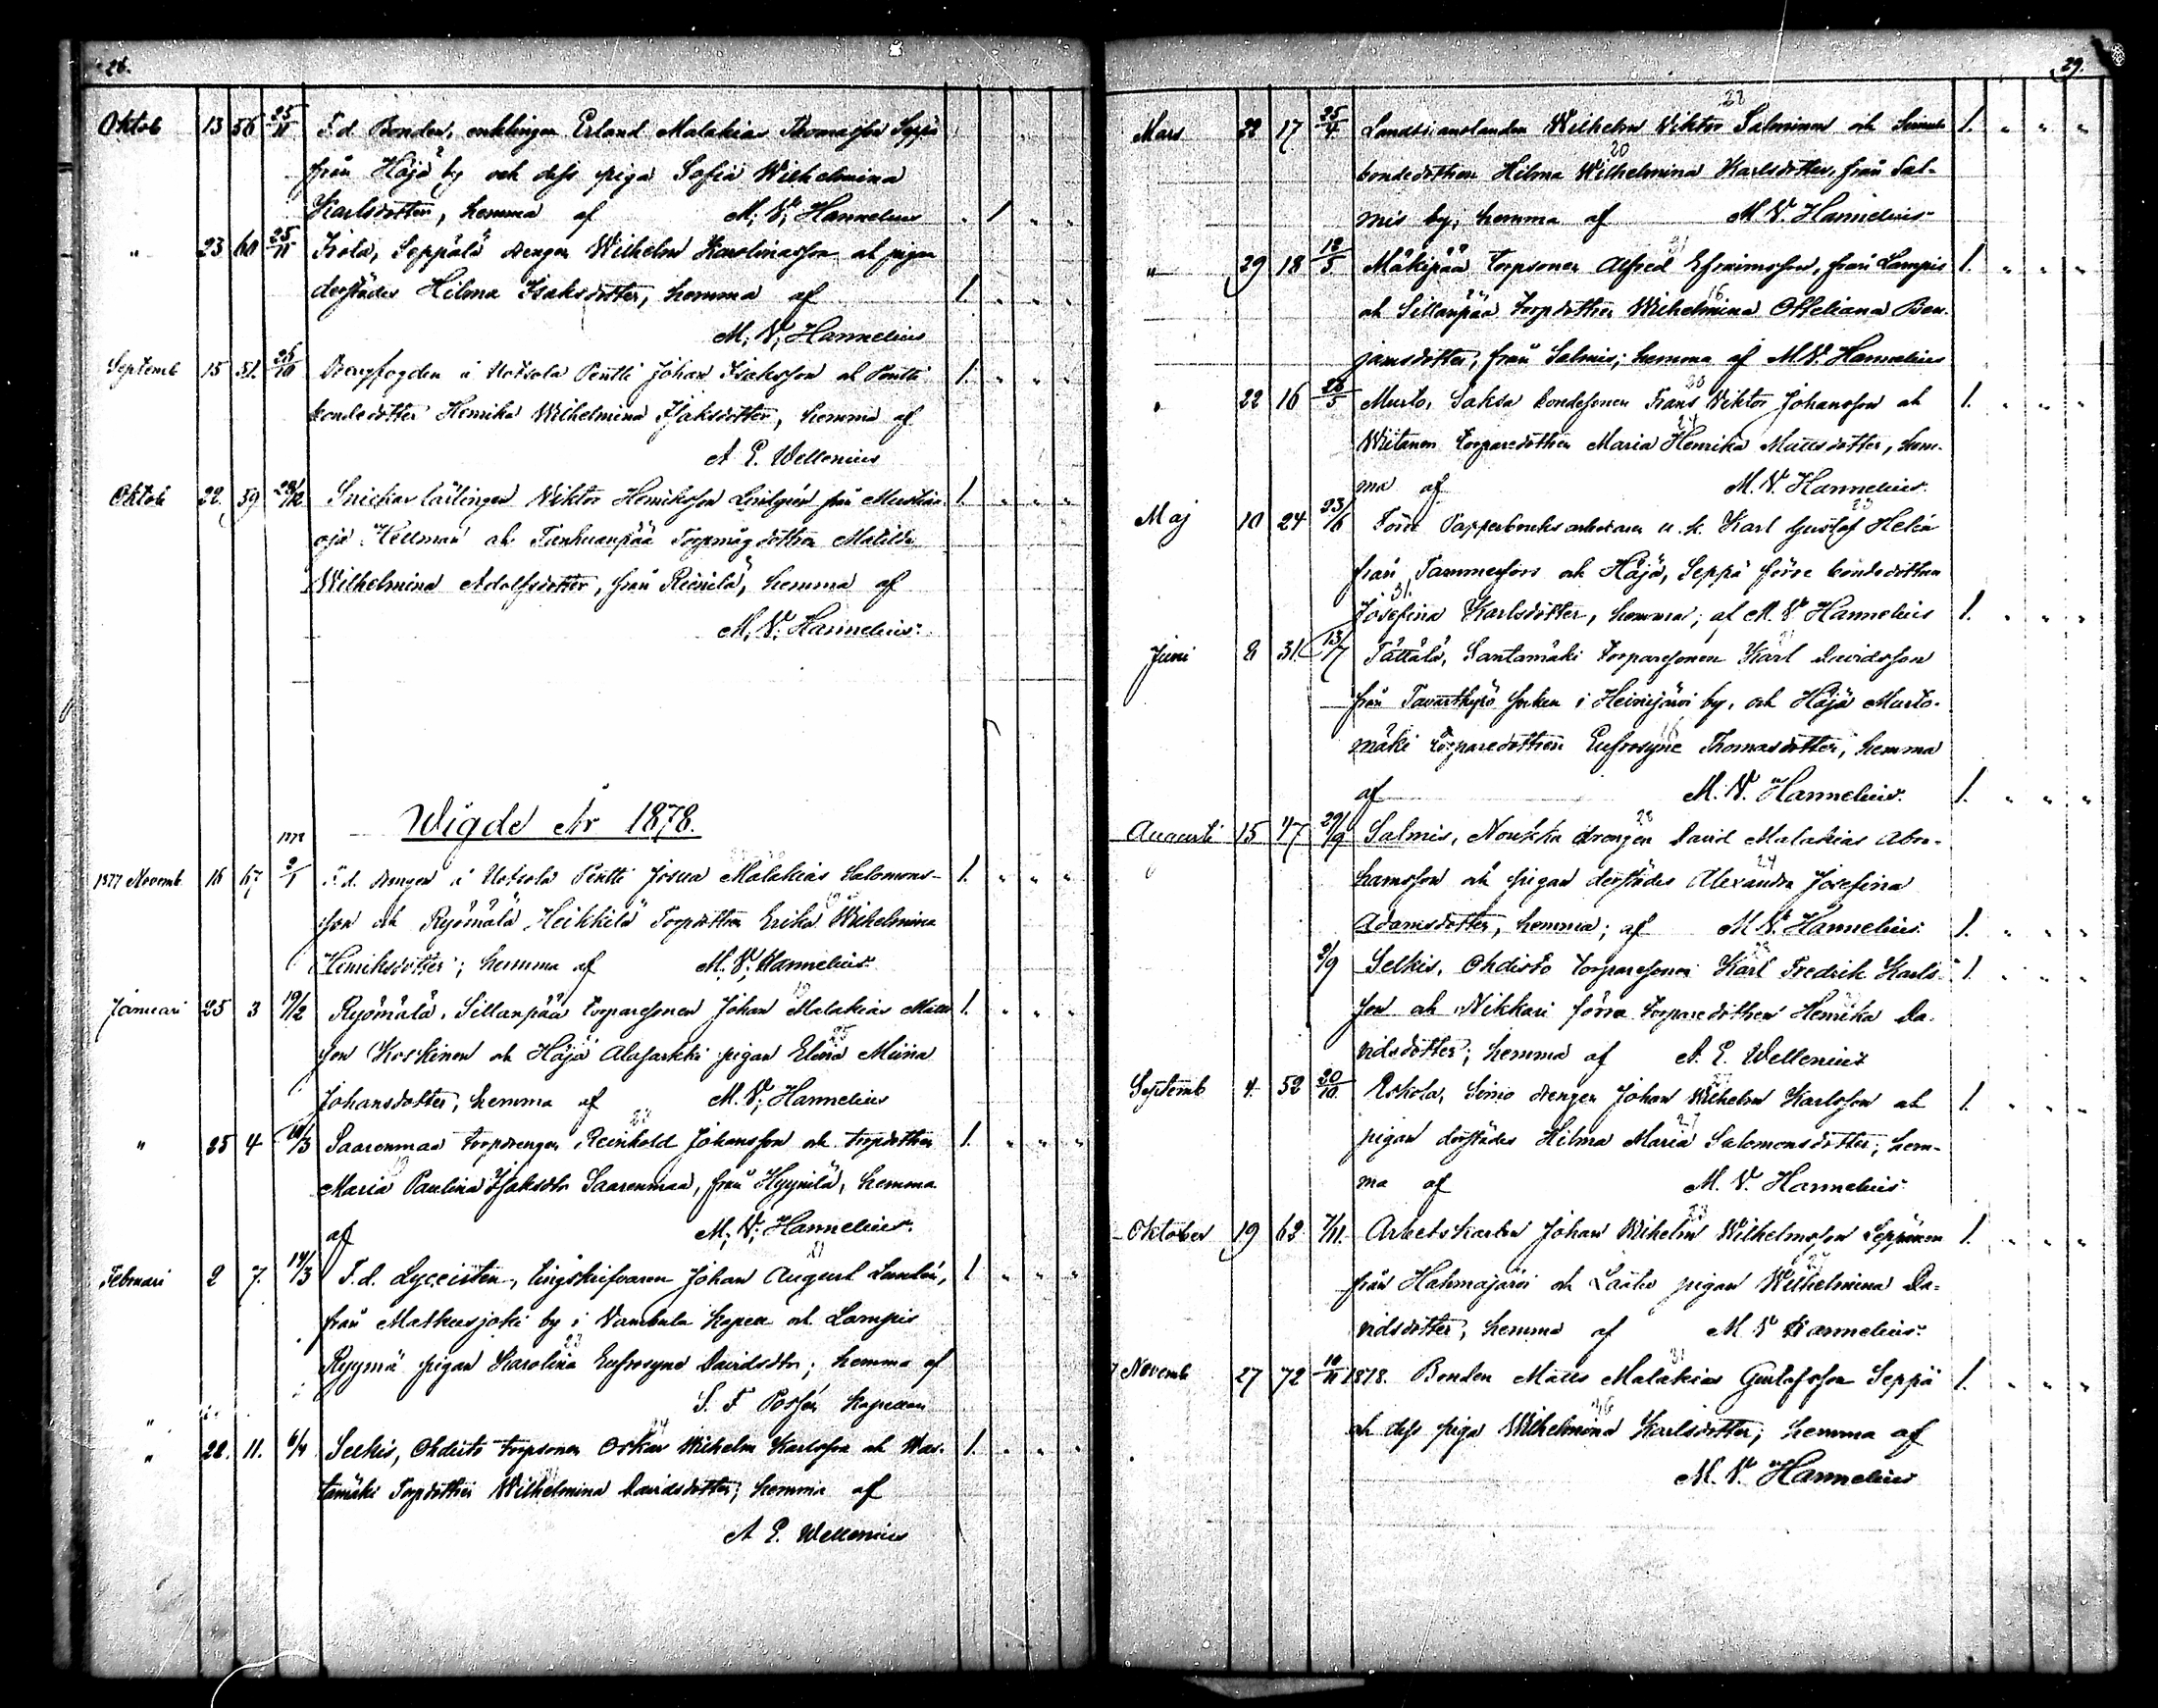 28.
Oktob 13 56 25/11 F.d. Bonden, enklingen Erland Malakias Thomasson Seppä
från Häjä by och dess piga Sofia Wilhelmina
Karlsdotter, hemma af M. V. Hannelius . 1 " "
" 23 60 25/11 Isola, Seppälä drengen Wilhelm Karolinasson ah pigan
derstädes Hilma Isaksdotter, hemma af 1. " " "
M. V. Hannelius
Septemb 15 51. 26/10 Drengfogden i Uotsola Pentti Johan Isaksson ah Pentti 1. " " "
bondedotter Henrika Wilhelmina Isaksdotter, hemma af
A E. Wellenius
Oktob 22. 59 Snickar lärlingen Viktor Henriksson Lindgren från
oja Hellman ah Matilda
Wilhelmina Adolfsdotter, från hemma af
M. V. Hannelius.
Wigde År 1878.
1878
1877 Novemb 16 67 2/1 F.d. drengen i Uotsola Pentti Josua Malakias Salomons- 1. " " "
son ah Ryömälä Heikkilä Torpdottren Erika Wilhelmina
Henriksdotter; hemma af M. V. Hannelius.
Januari 25 3 10/2 Ryömälä, Sillanpää torparesonen Johan Malakias Matts 1. " " "
son Koskinen och Häjä Alasarkki pigan Elina Miina
Johansdotter, hemma af M. V. Hannelius
" 25 4 10/3 Saarenmaa torpdrengen Reinhold Johansson och torpdottren 1. " " "
Maria Paulina Isaksdtr Saarenmaa, från Hyynilä, hemma
af M. V. Hannelius.
Februari 2 7. 14/3 F.d. Lyceisten, tingskrifvaren Johan August Lundén, 1 " " "
från Matkusjoki by i Vambula kapell och Lampis
Ryymä pigan Karolina Eufrosyne Davidsdtr; hemma af
S. F kapellan
" 28. 11. 6/4 Selkis, Ohdisto torpsonen Oskar Wilhelm Karlsson ah Was- 1. " " "
tamäki Torpdottren Wilhelmina Davidsdotter; hemma af
A E. Wellenius
29.
Mars 22 17 25/4 Wilhelm Viktor Salminen och 1. " " "
bondedottren Hilma Wilhelmina Karlsdotter, från Sal-
mis by; hemma af M. V. Hannelius.
" 29 18 12/5 Mäkipää torpsonen Alfred Efraimsson, från Lampis 1. " " "
ah Sillanpää torpdottren Wilhelmina Otteliana Ben-
jamsdotter, från Salmis; hemma af M. V. Hannelius
" 22 16 26/5 Murto, Saksa bondesonen Frans Viktor Johansson ah 1. " " "
Wiitanen torparedottren Maria Henrika Mattsdotter, hem-
ma af M. V. Hannelius.
Maj 10 24 23/6 Förre Papperbruksarbetaren u. k. Karl Gustaf
från Tammerfors och Häjä, Seppä förre bondedottren
Josefina Karlsdotter, hemma; af M. V. Hannelius 1. " " "
Juni 8 31. 13/7 Tättälä, Santamäki torparesonen Karl Davidsson
från Tavastkyrö socken i Heinijärvi by, och Häjä Murto-
mäki torparedottren Eufrosyne Thomasdotter, hemma
af M. V. Hannelius. 1. " " "
Augusti 15 47 29/9 Salmis, Noukka drengen David Malakias Abra-
hamsson och pigan derstädes Alexandra Josefina
Adamsdotter, hemma; af M. V. Hannelius. 1. " " "
8/9 Selkis, Ohdisto torparesonen Karl Fredrik Karls- 1. " " "
son ah Nikkari förra torparedottren Henrika Da-
vidsdotter; hemma af A. E. Wellenius
Septemb 4. 52 20/10 Eskola, Simo drengen Johan Wilhelm Karlsson ah 1. " " "
pigan derstädes Hilma Maria Salomonsdotter; hem-
ma af M. V. Hannelius.
Oktober 19 62 7/11. Arbetskarlen Johan Wilhelm Wilhelmsson Leppänen 1. " " "
från Hahmajärvi och Laato pigan Wilhelmina Da-
vidsdotter; hemma af M V Hannelius.
Novemb 27 72 10/11 1878. Bonden Matts Malakias Gustafsson Seppä 1. " " "
ah dess piga Wilhelmina Karlsdotter; hemma af
M. V. Hannelius